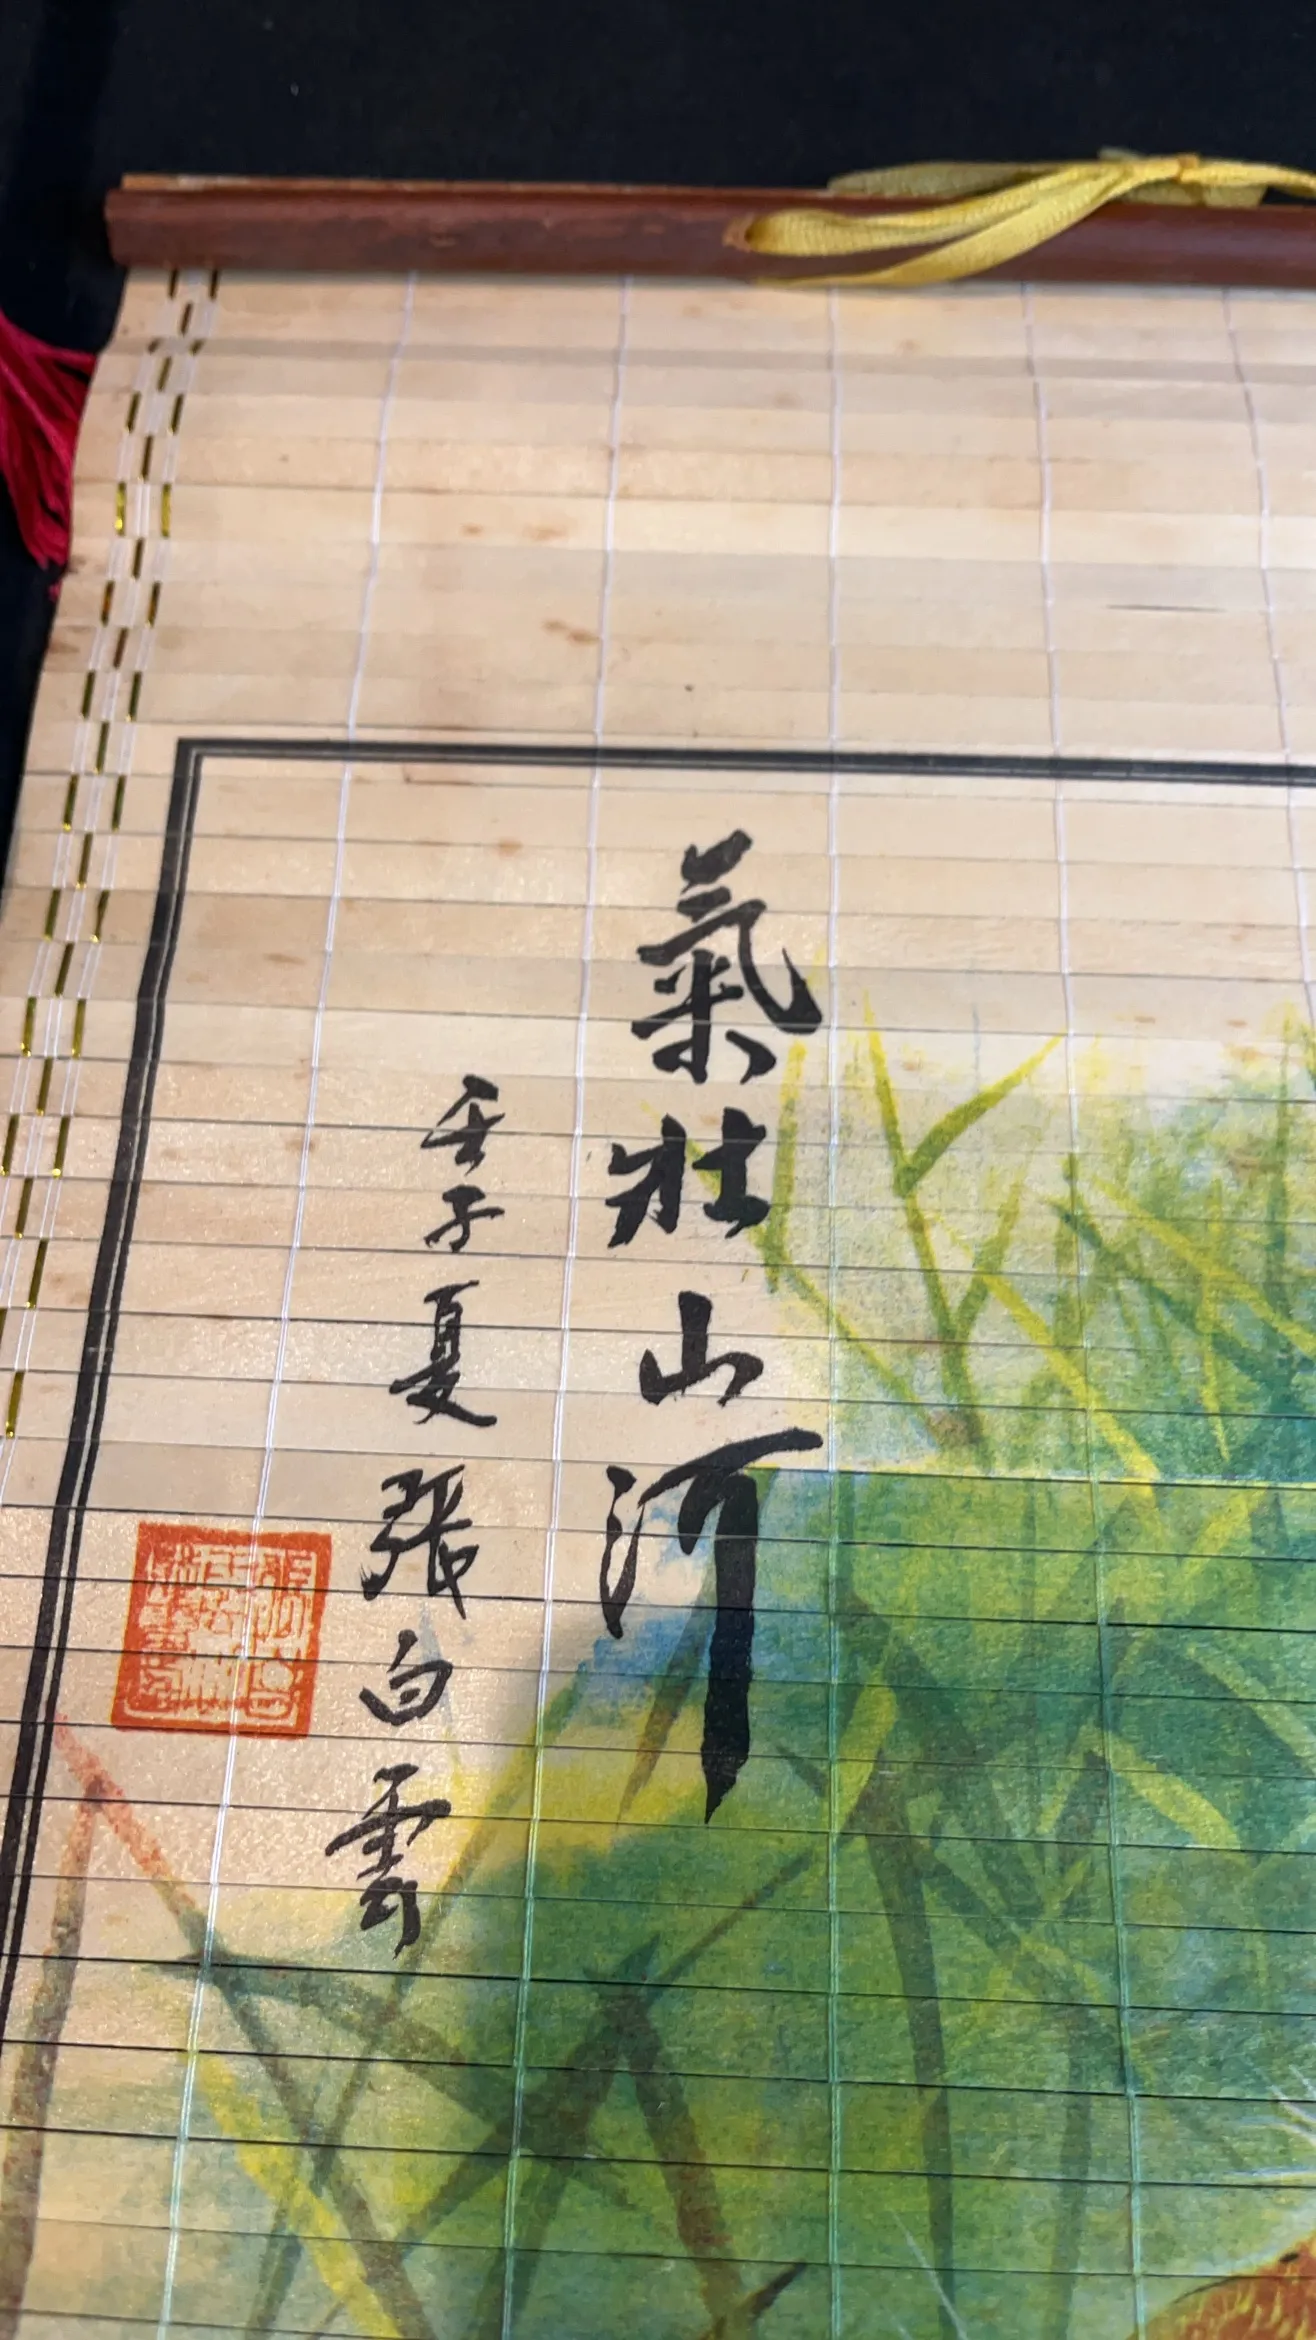 氣壯山河
壬子夏張白雲